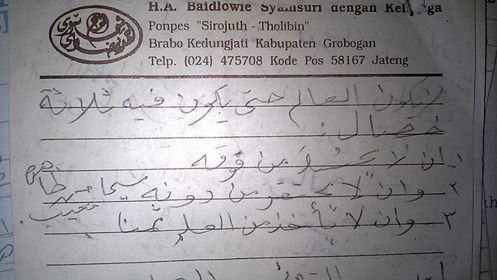 H.A. Baidlowie Syamsuri dengan Kel ga
Ponpes "Sirojuth - Tholibin"
Brabo Kedungjati Kabupaten Grobogan
Telp. (024) 475708 Kode Pos 58167 Jateng
لا يكون العالم حتى يكون فيه ثلاثة
خصال :
١. ان لا يحسد من فوقه
٢. وان لا يحتقر من دونه
٣. وان لا تأخذ من العلم ثمنا